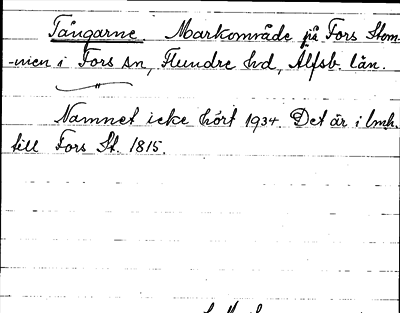 Tångarne. Markområde på Fors Stom-
-men i Fors sn, Flundre hd, Älfsb. län.
Namnet icke hört 1934. Det är i lmh.
till Fors St. 1815.